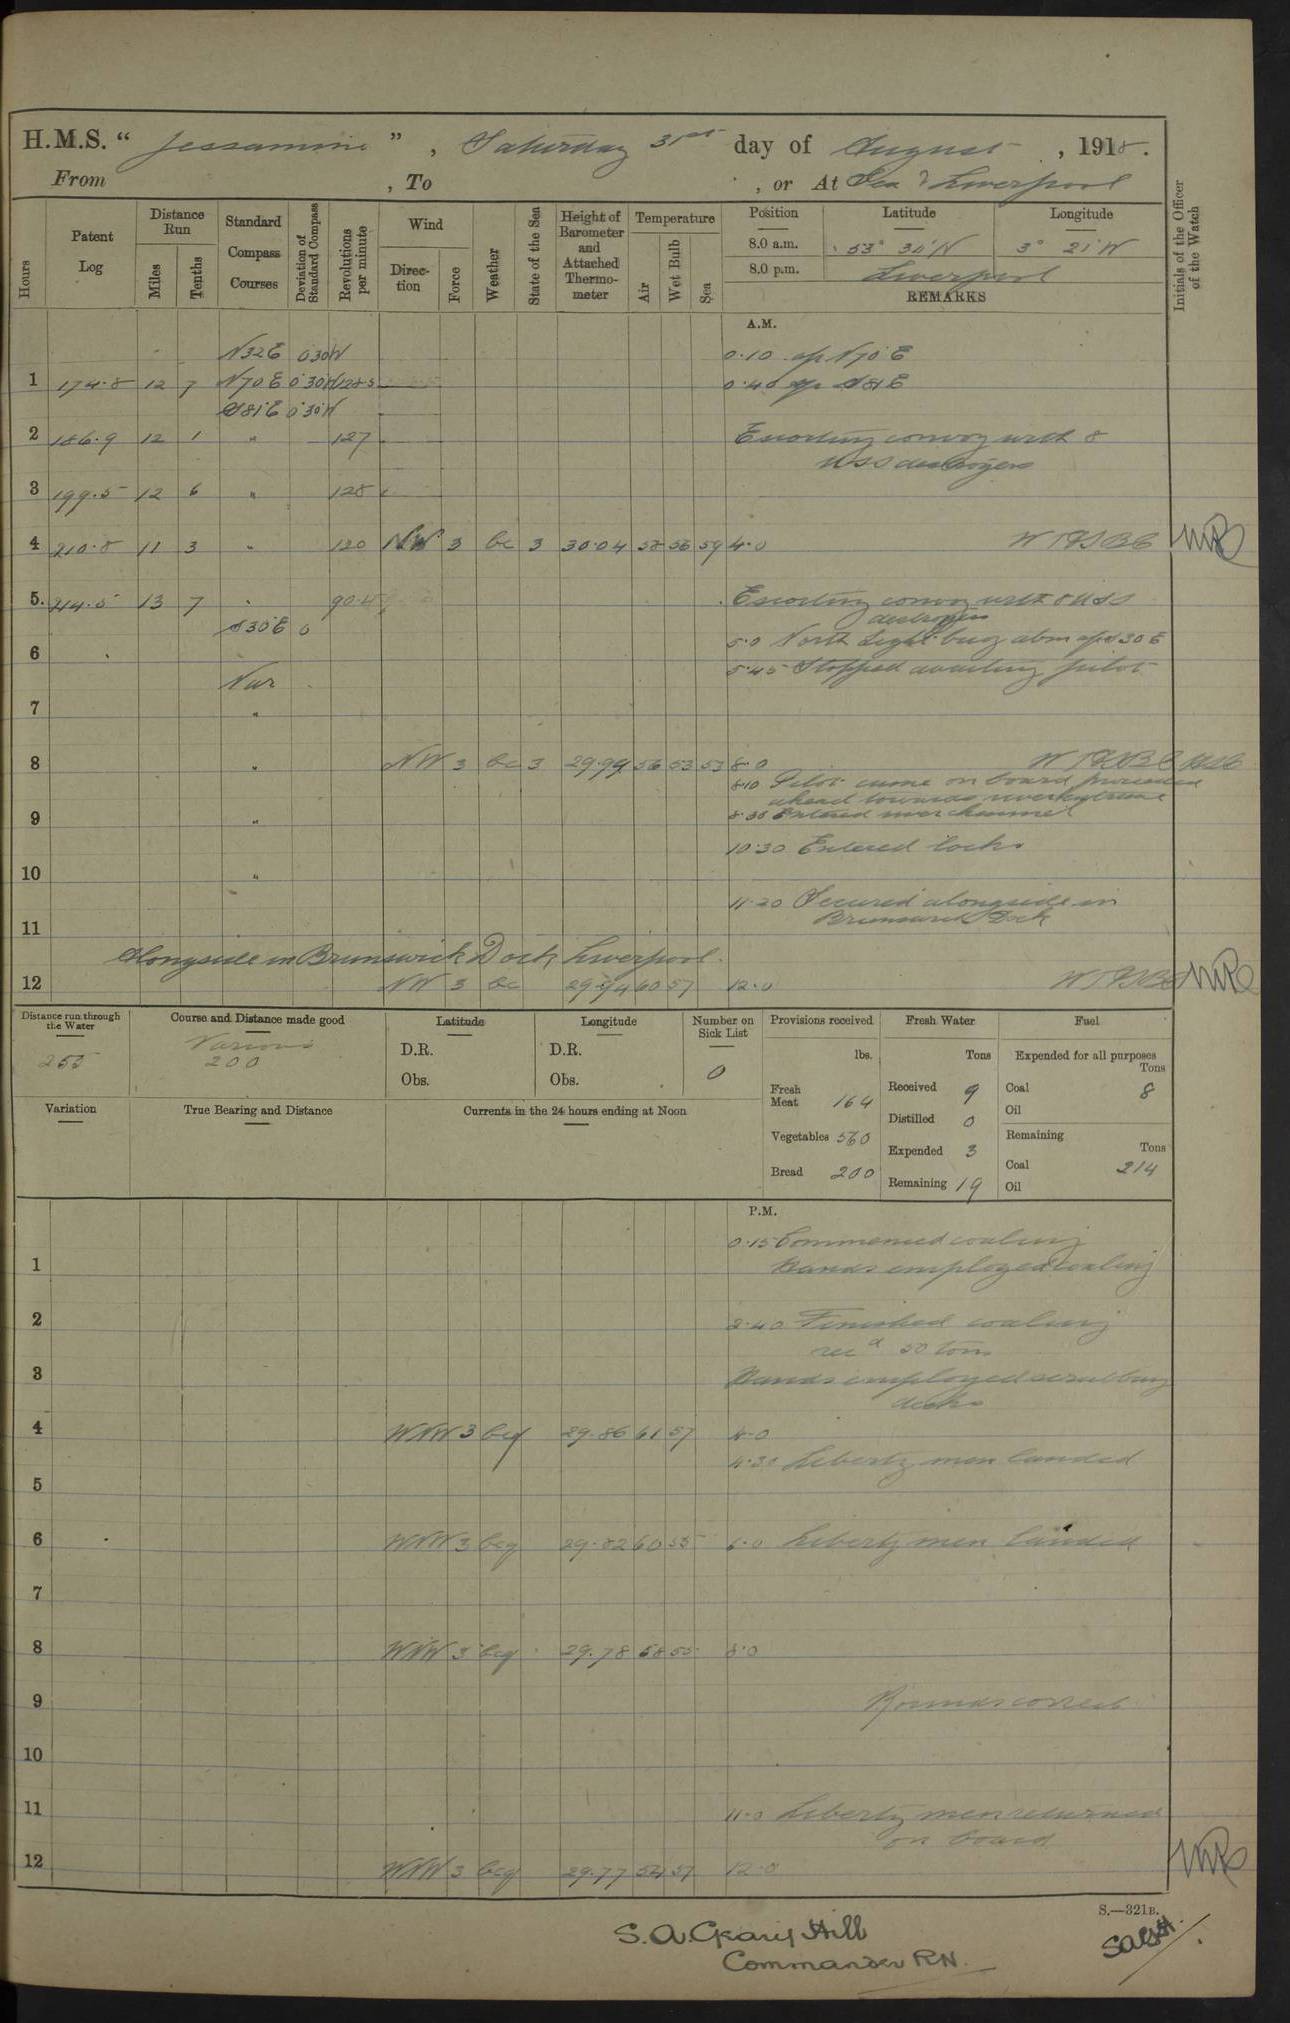 H.M.S. “ Jessamine ” , Saturday 31st day of August , 1918.
From , To , or At Sea & Liverpool
Hours
Patent Log
Distance Run
Miles
Tenths
Standard Compass Courses
Deviation of Standard Compass
Revolutions per minute
Wind
Direction
Force
Weather
State of the Sea
Height of Barometer and Attached Thermometer
Temperature
Air
Wet Bulb
Sea
Position Latitude Longitude
8.0 a.m. 53° 30'N 3° 21'W
8.0 p.m. Liverpool
REMARKS
Initials of the Officer of the Watch
A.M.
N32E 0°30W 0·10 a/c N70°E
1 174·8 12 7 N70E 0°30W 128·5 0·40 a/c S81E
S81E 0°30W
2 186·9 12 1 " 127 Escorting convoy with 8
USS destroyers
3 199·5 12 6 " 128
4 210·8 11 3 " 120 NW 3 bc 3 30·04 58 56 59 4·0
5. 214·5 13 7 " 90·4 Escorting convoy with 8 USS
destroyers
S30E 0 5·0 North Light buoy abm a/c S30E
6 5·45 Stopped awaiting pilot
Var
7 "
8 " NW 3 bc 3 29·99 56 53 53 8·0
8·10 Pilot came on board proceeded
ahead towards river entrance
9 " 8·35 Entered river channel
10·30 Entered locks
10 "
11·20 Secured alongside in
Brunswick Dock
11
Alongside in Brunswick Dock, Liverpool.
12 NW 3 bc 29·94 60 57 12·0
Distance run through the Water
255
Course and Distance made good
Various
200
Latitude
D.R.
Obs.
Longitude
D.R.
Obs.
Number on Sick List
0
Provisions received
lbs.
Fresh Meat 164
Vegetables 560
Bread 200
Fresh Water
Tons
Received 9
Distilled 0
Expended 3
Remaining 19
Fuel
Expended for all purposes
Tons
Coal 8
Oil
Remaining
Tons
Coal 214
Oil
Variation
True Bearing and Distance
Currents in the 24 hours ending at Noon
P.M.
0·15 Commenced coaling
1 Hands employed coaling
2 2·40 Finished coaling
recd 50 tons
3 Hands employed scrubbing
decks
4 WNW 3 bcq 29·86 61 57 4·0
4·30 Liberty men landed
5
6 WNW 3 bcq 29·82 60 55 6·0 Liberty men landed
7
8 WNW 3 bcq 29·78 58 55 8·0
9 Rounds correct
10
11 11·0 Liberty men returned
on board
12 WNW 3 bcq 29·77 54 51 12·0
S.—321B.
S.A. Geary Hill
Commander RN.